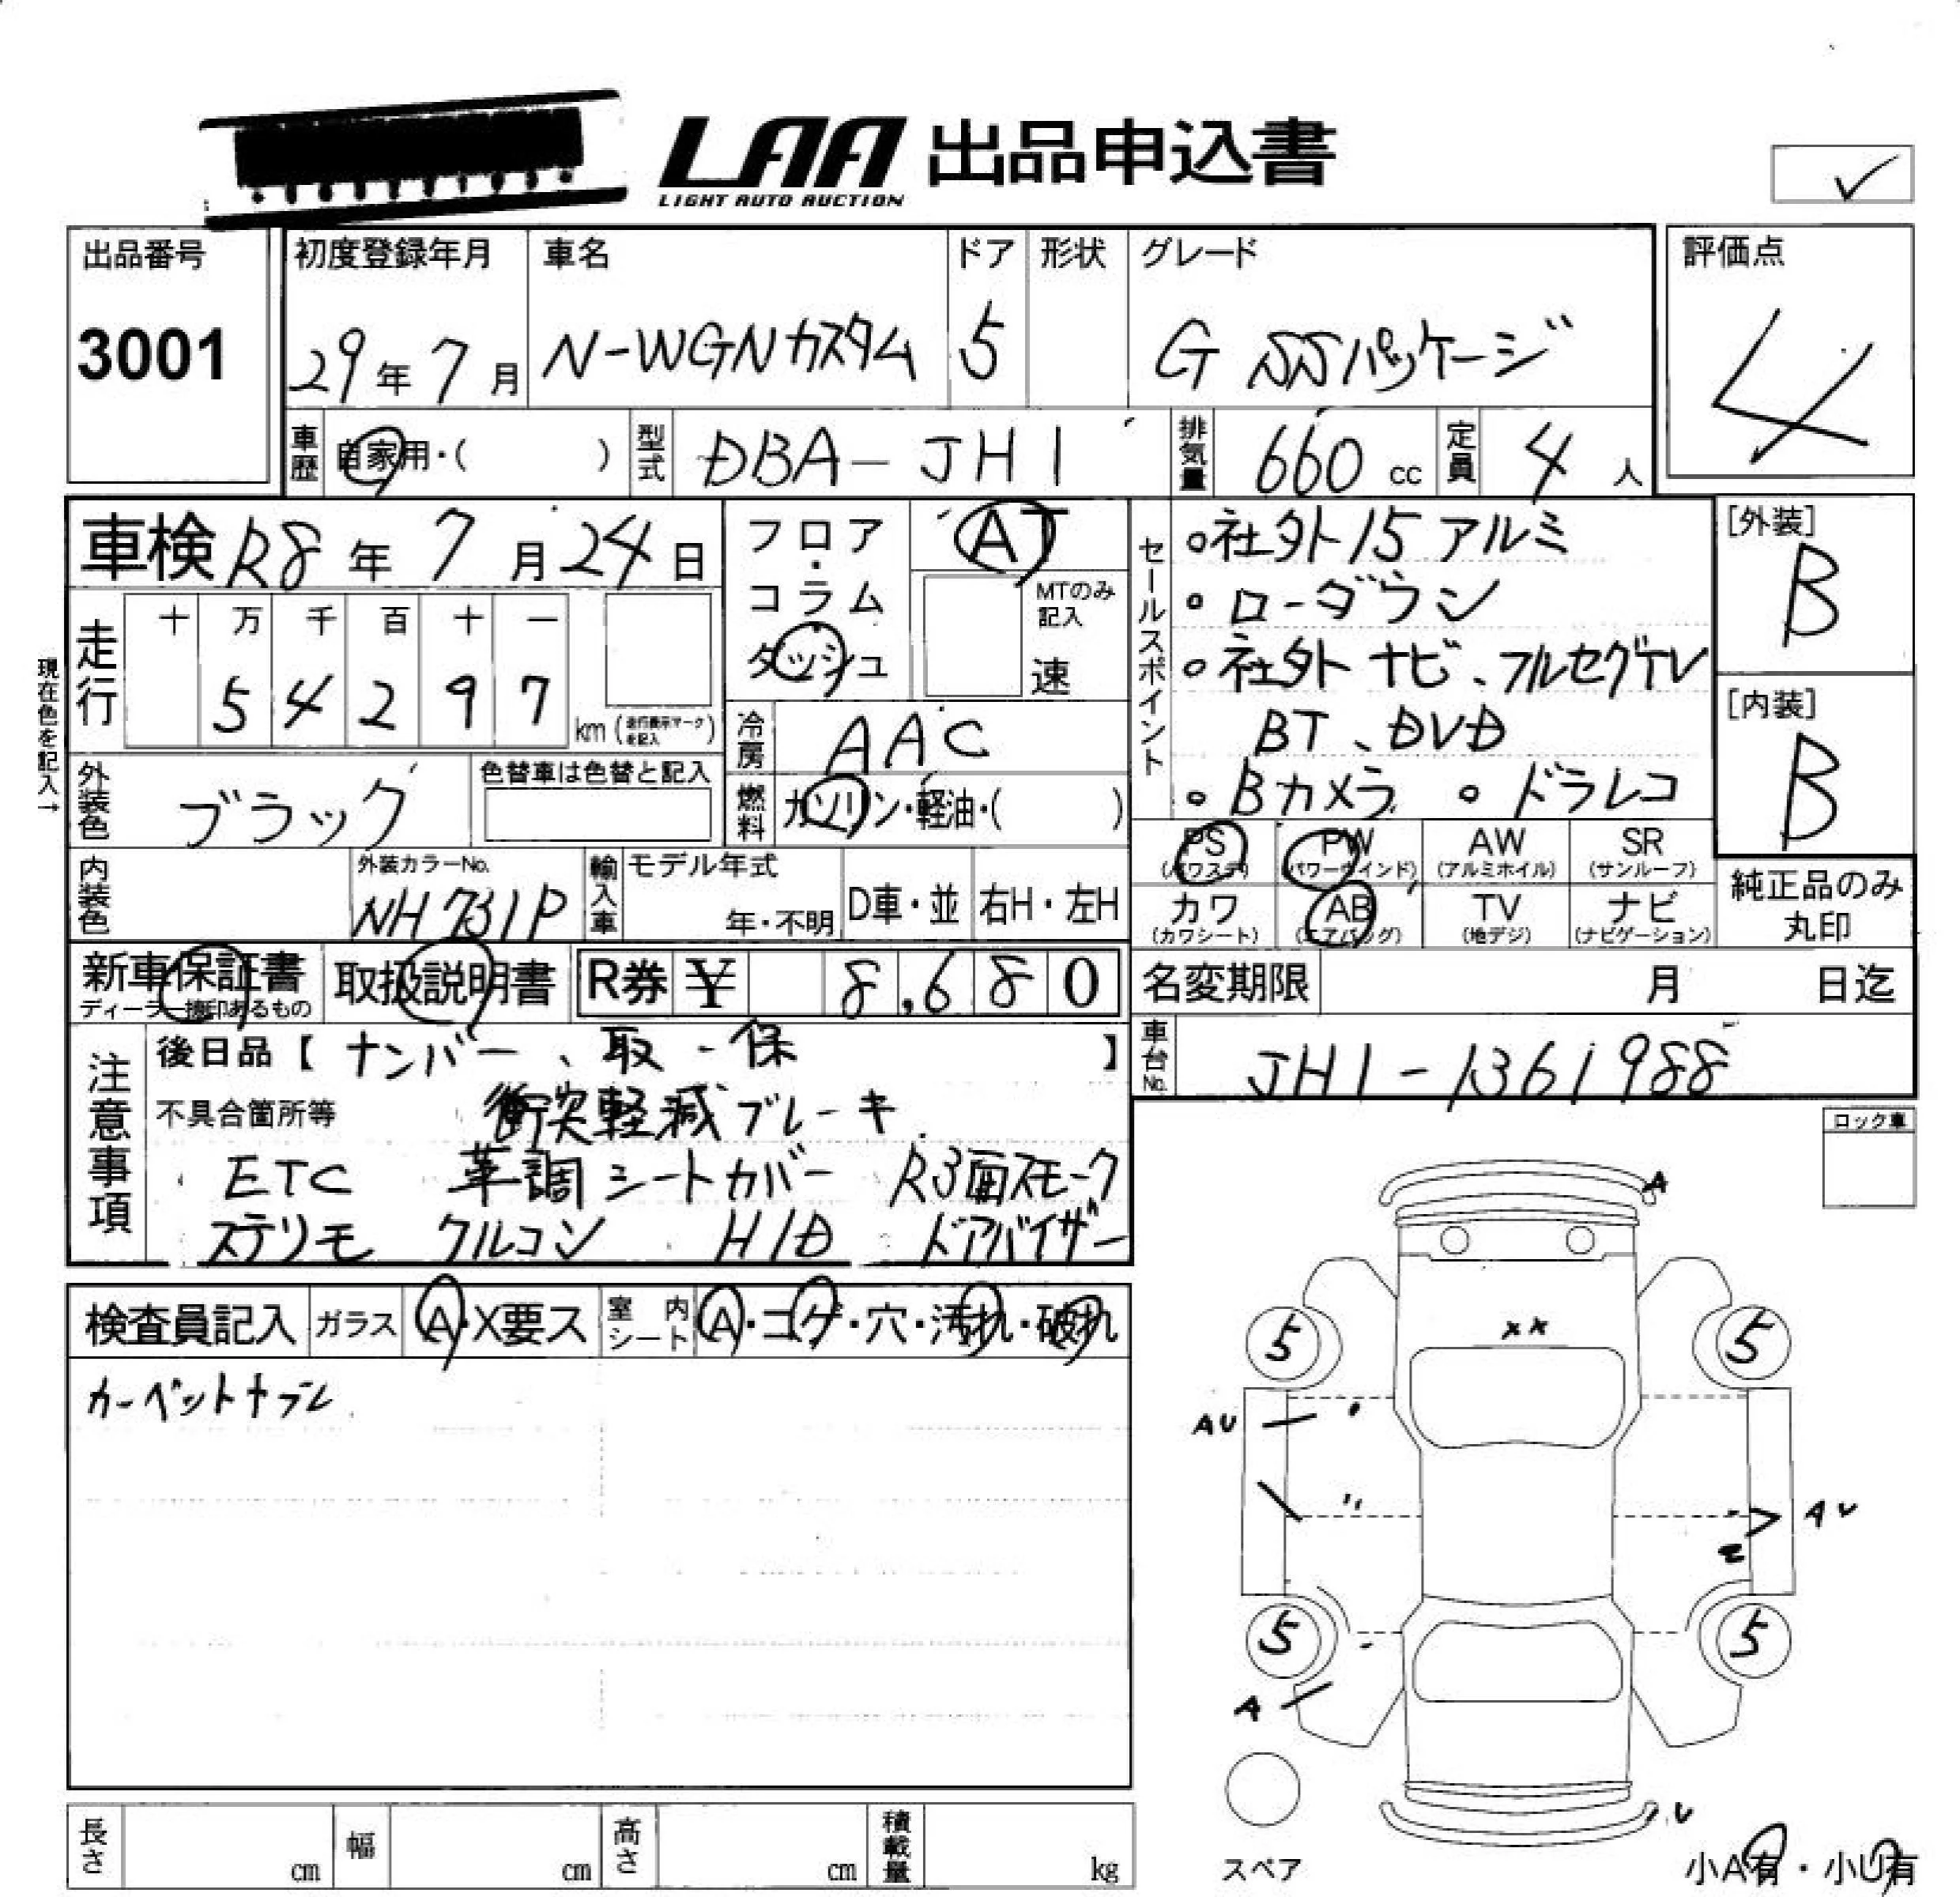 LAA 出品申込書
LIGHT AUTO AUCTION
✓
出品番号 初度登録年月 車名 ドア 形状 グレード 評価点
3001 29年7月 N-WGNカスタム 5 G SSパッケージ 4
車歴 自家用・( ) 型式 DBA-JH1 排気量 660 cc 定員 4人
車検 R8年7月24日
フロア・コラム
ダッシュ
AT
MTのみ記入
速
現在色を記入→
走行 十 万 千 百 十 一
5 4 2 9 7 km (走行表示マークを記入)
冷房 AAC
外装色 ブラック 色替車は色替と記入
燃料 ガソリン・軽油・( )
内装色 外装カラーNo. NH731P
輸入車 モデル年式 年・不明 D車・並 右H・左H
セールスポイント
・社外15アルミ
・ローダウン
・社外ナビ、フルセグTV
BT、DVD
・Bカメラ ・ドラレコ
[外装] B
[内装] B
PS (パワステ) PW (パワーウインド) AW (アルミホイル) SR (サンルーフ)
カワ (カワシート) AB (エアバッグ) TV (地デジ) ナビ (ナビゲーション)
純正品のみ丸印
新車保証書 取扱説明書 R券 ¥ 8,680
ディーラー捺印あるもの
名変期限 月 日迄
車台No. JH1-1361988
注意事項
後日品【 ナンバー、取・保 】
不具合箇所等 衝突軽減ブレーキ
ETC 革調シートカバー R3面スモーク
ステリモ クルコン HID ドアバイザー
ロック車
検査員記入 ガラス A・X要ス 室内シート A・コゲ・穴・汚れ・破れ
カーペットナシ
A
XX
5 5
AU
〃
AU
5 5
A
U
スペア
小A有・小U有
長さ cm 幅 cm 高さ cm 積載量 kg